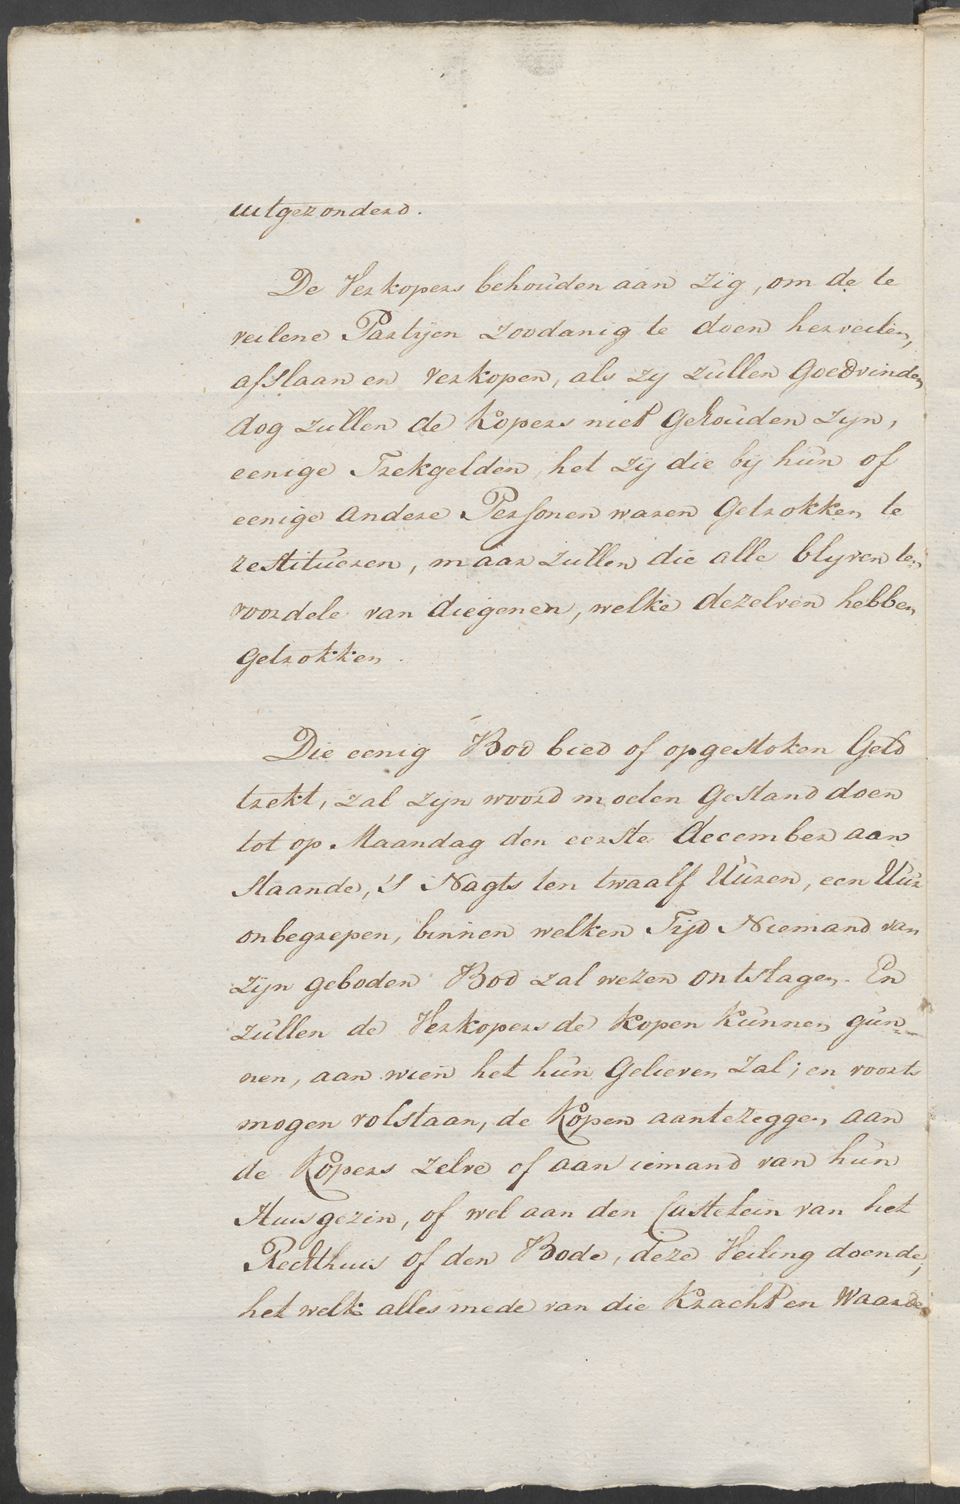 uitgezonderd.
De Verkopers behouden aan zig, om de te
veilene Partijen zoodanig te doen herveilen,
afslaan en verkopen, als zy zullen Goedvinden
dog zullen de Kopers niet Gehouden zyn,
eenige Trekgelden, het zij die bij hun of
eenige andere Personen waren Getrokken te
restitueren, maar zullen die alle blyven ten
voordele van diegenen, welke dezelven hebben
Getrokken.
Die eenig Bod bied of opgestoken Geld
trekt, zal zijn woord moeten Gestand doen
tot op Maandag den eerste december aan
staande, 's Nagts ten twaalf Uuren, een Uur
onbegrepen, binnen welken Tijd Niemand van
zijn geboden Bod zal wezen ontslagen. En
zullen de Verkopers de Kopen kunnen gun-
nen, aan wien het hun Gelieven zal; en voorts
mogen volstaan, de Kopen aantezeggen aan
de Kopers zelve of aan iemand van hun
Huisgezin, of wel aan den Castelein van het
Rechthuis of den Bode, deze Veiling doende,
het welk alles mede van die Kracht en Waarde